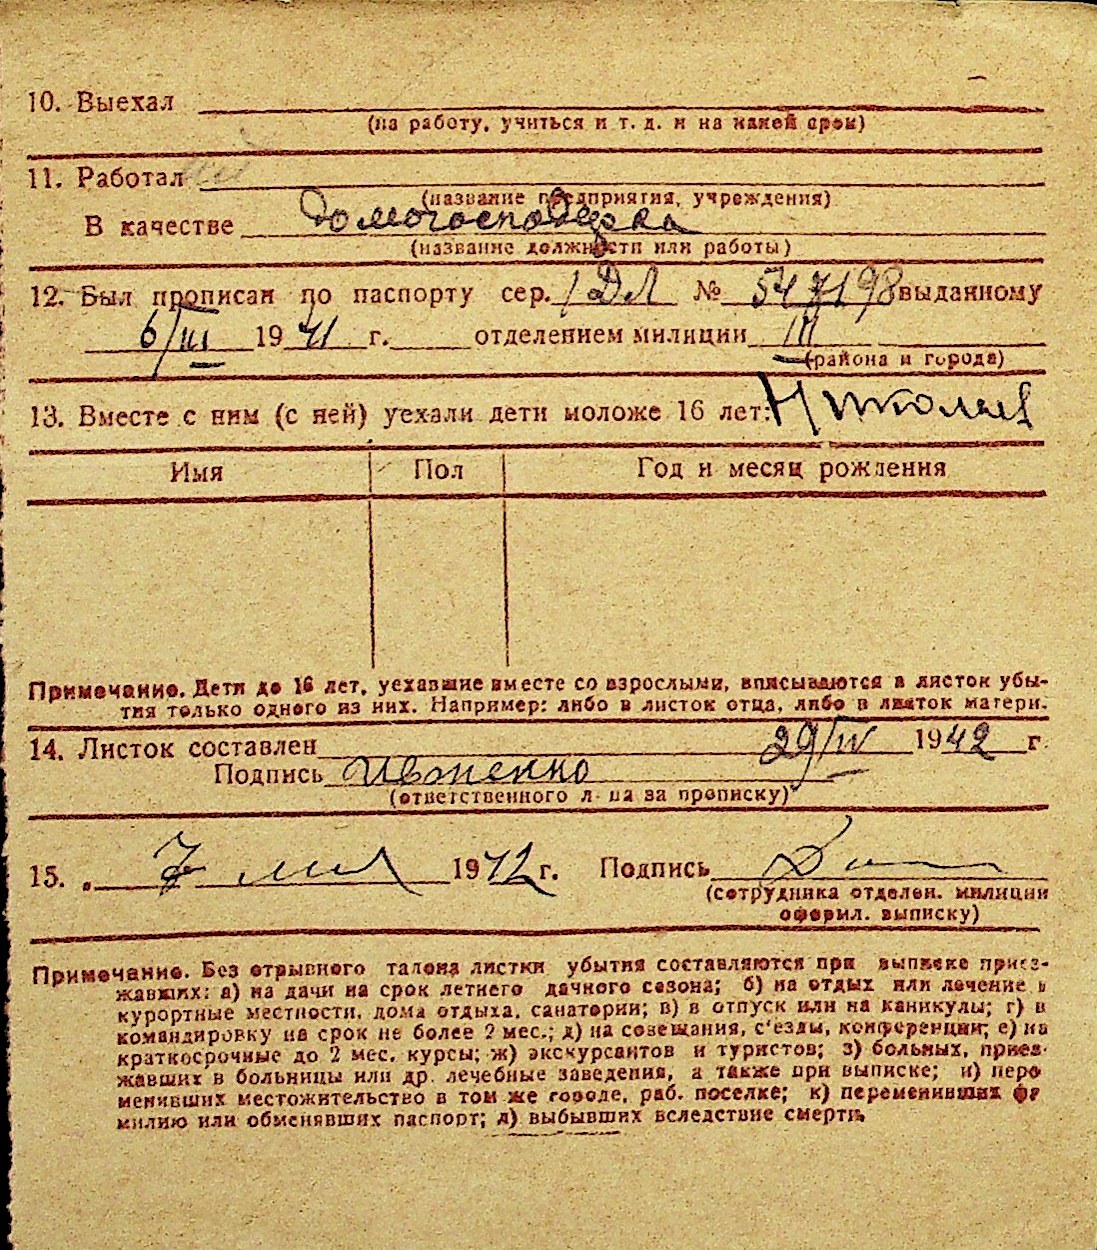 10. Выехал
(на работу, учиться и т. д. и на какой срок)
11. Работал
(название предприятия, учреждения)
В качестве домогосподарка
(название должности или работы)
12. Был прописан по паспорту сер. I ДЛ № 547198 выданному
6/III 1941 г. отделением милиции III
(района и города)
13. Вместе с ним (с ней) уехали дети моложе 16 лет: Николаев
Имя Пол Год и месяц рождения
Примечание. Дети до 16 лет, уехавшие вместе со взрослыми, вписываются в листок убы-
тия только одного из них. Например: либо в листок отца, либо в листок матери.
14. Листок составлен 29/IV 1942 г.
Подпись
(ответственного л-ца за прописку)
15. 7 мая 1942 г. Подпись
(сотрудника отделен. милиции
оформил. выписку)
Примечание. Без отрывного талона листки убытия составляются при выписке приез-
жавших: а) на дачи на срок летнего дачного сезона; б) на отдых или лечение в
курортные местности, дома отдыха, санатории; в) в отпуск или на каникулы; г) в
командировку на срок не более 2 мес.; д) на совещания, с'езды, конференции; е) на
краткосрочные до 2 мес. курсы; ж) экскурсантов и туристов; з) больных, приез-
жавших в больницы или др. лечебные заведения, а также при выписке; и) пере
менивших местожительство в том же городе, раб. поселке; к) переменивших фа
милию или обменявших паспорт; л) выбывших вследствие смерти.